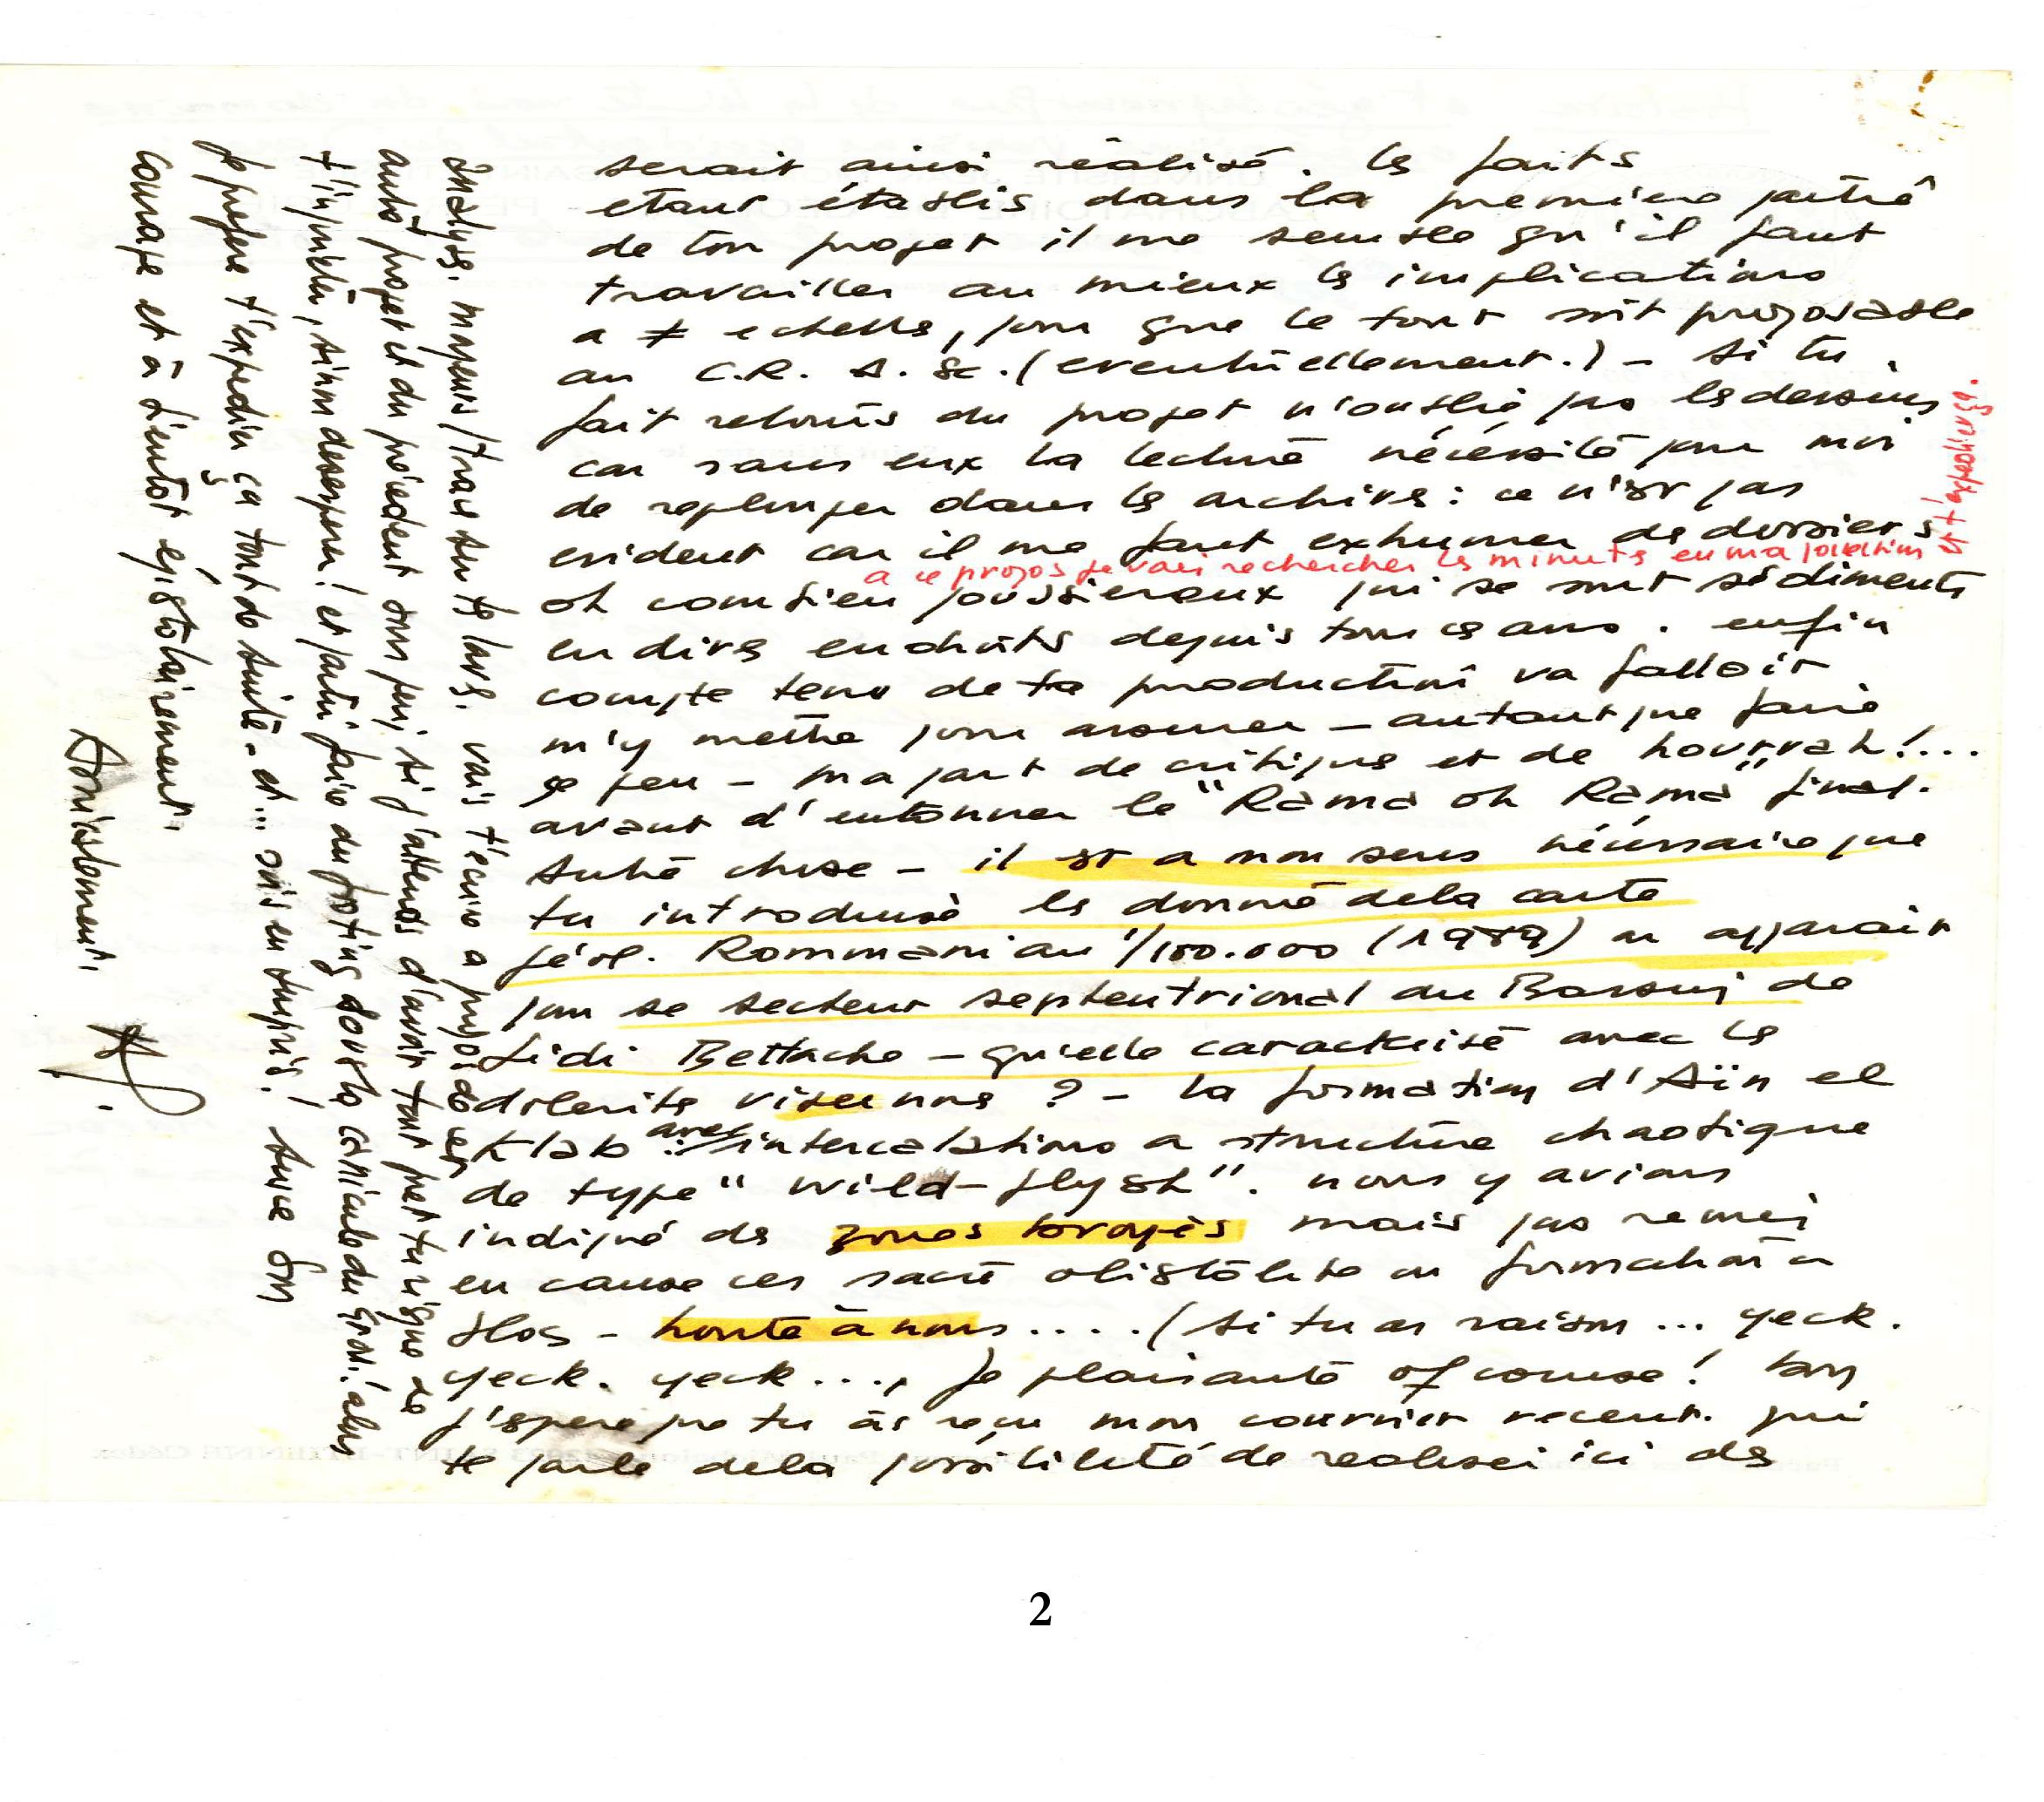 serait ainsi réalisé. les faits
etant établis dans la premiere partie
de ton projet il me semble qu'il faut
travailler au mieux les implications
a ≠ echelles, pour que le tout soit proposable
au C.R. A. Sc. (eventuellement.) - Si tu
fait retours du projet n'oublie pas les dessins
car sans eux la lecture nécéssite pour moi
de replonger dans les archives : ce n'est pas
evident car il me faut exhumer des dossiers
a ce propos je vais rechercher les minutes en ma possession et t'expedierges.
oh combien poussiereux qui se sont sédimentés
en divers endroits depuis tous ces ans. enfin
compte tenu de ta production va falloir
m'y mettre pour assumer - autant que faire
se peu - ma part de critiques et de hourrah!...
avant d'entonner le "Rama oh Rama" final.
Autre chose - il est a mon sens nécéssaire que
tu introduise les donnés de la carte
géol. Rommani au 1/100.000 (1989) ou apparait
pour le secteur septentrional du Bassin de
Sidi Bettache - qu'elle caracterise avec les
dolerites viseennes ? - la formation d'Aïn el
Klab avec intercalations a structure chaotique
de type "wild-flysh". nous y avions
indiqué des zones broyées mais pas remis
en cause ces sacré olistolite ou formation a
blocs - honte à nous .... (si tu as raison ... yeck.
yeck. yeck ..., je plaisante of course! bon
j'espere que tu as reçu mon courrier recent. qui
te parle de la possibilité de realiser ici des
analyses. majeurs/traces sur tes laves. vais t'ecrire a propos de ces
autres projet et du précedent sous peu, si j'attends d'avoir tout pret tu risque de
t'inquieter, sinon desesperer! et partir faire du footing sous la canicule du Grd.! alors
je prefere t'expedier ça tout de suite - et... sois en surpris! Avec bon
courage et à bientot épistolairement.
Amicalement.